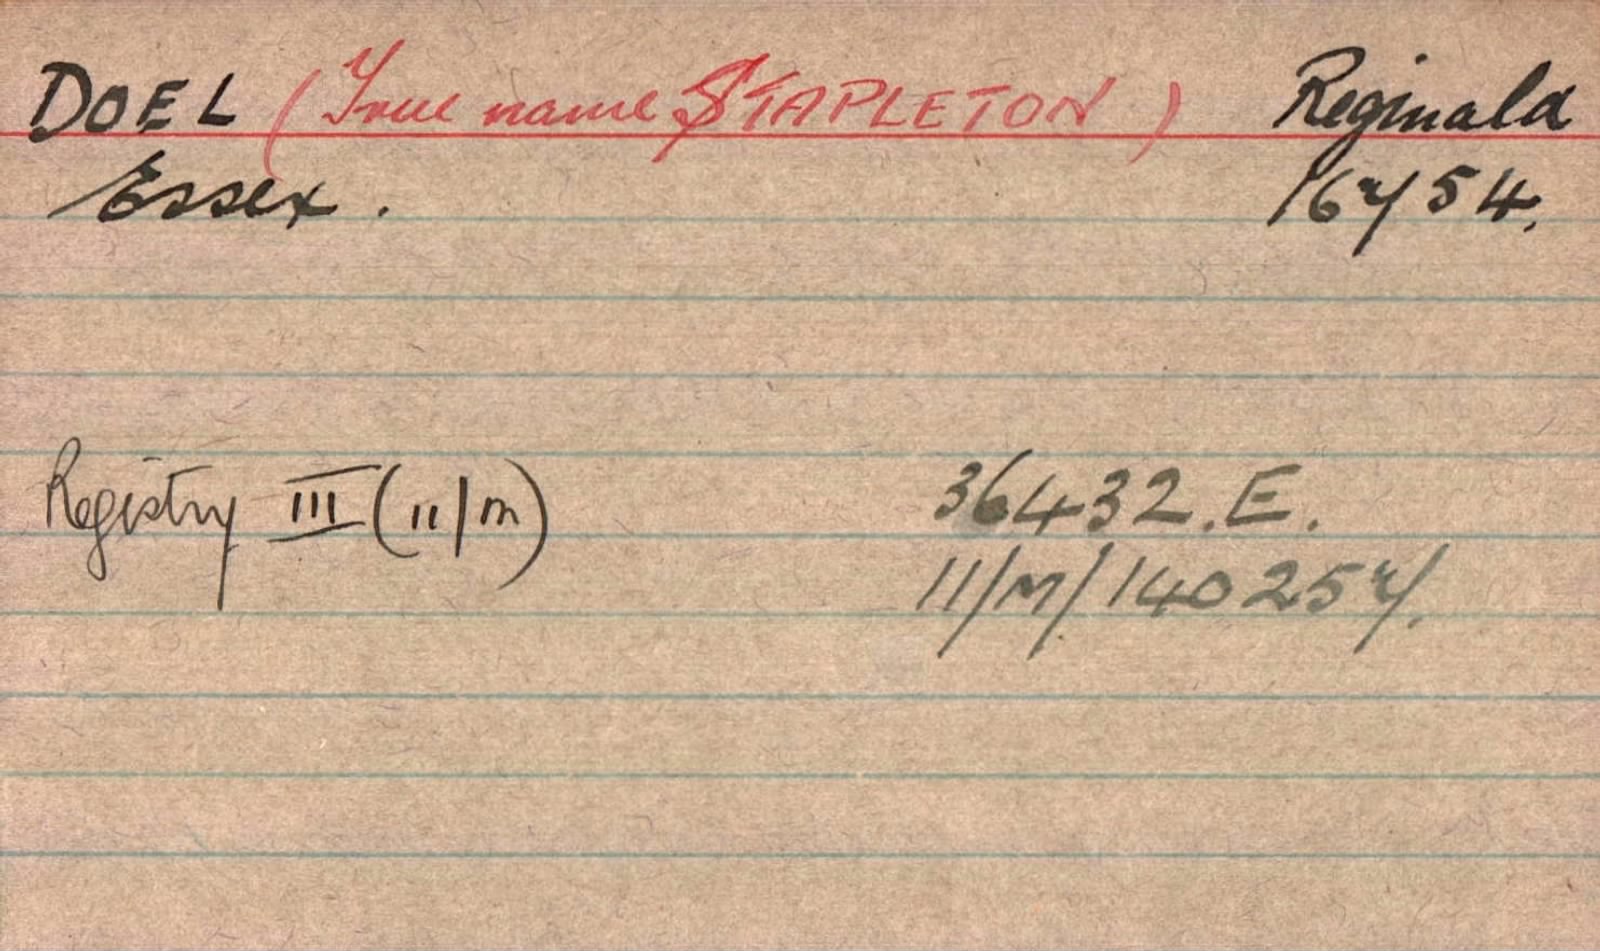 DOEL (True name STAPLETON) Reginald
Essex. 16754.
Registry III (11/m) 36432.E.
11/M/140257.